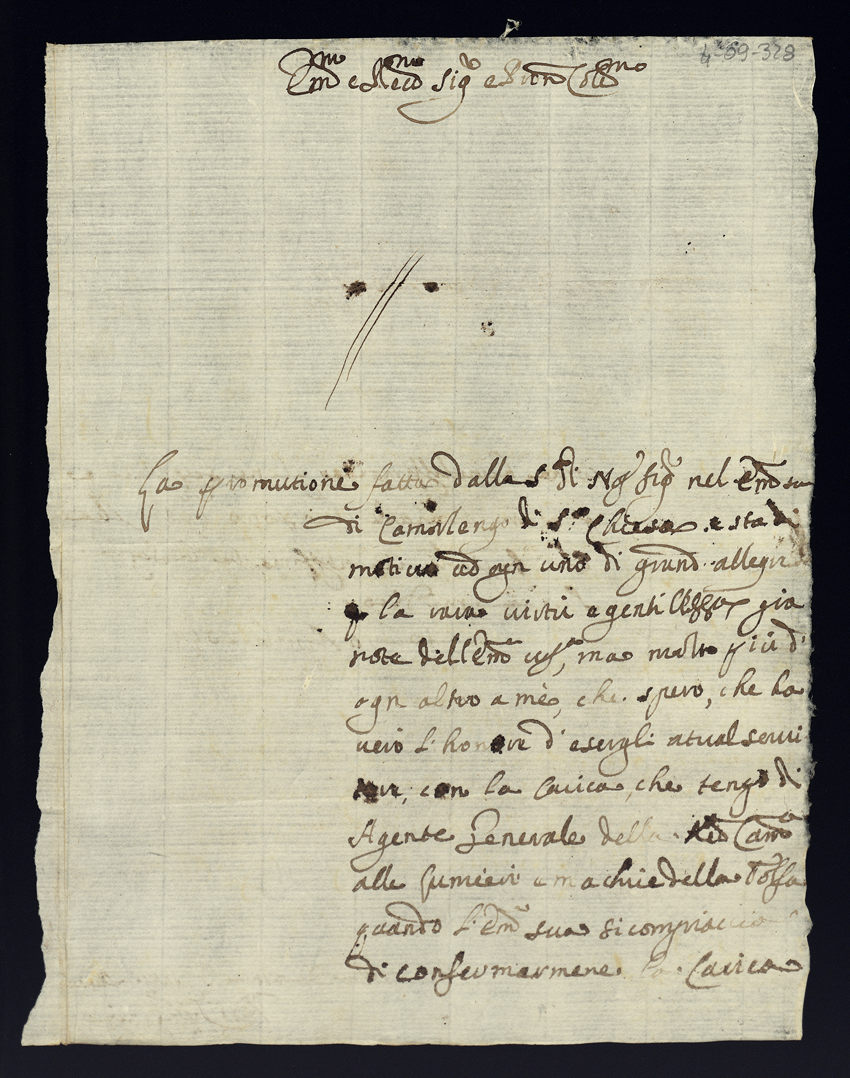 4-59-328
Em̃o e Reṽo Sig.r e Pron Col.mo
La promutione fatta dalla S.tà di Ng.ro Sig.re nel Em̃ sua
di Camerlengo di S.ta Chiesa e sta di
motivo ad ogn uno di grand allegrezza
p la rara virtù e gentilezza gia
note dell Em̃a vs̃a, ma molto più d'
ogn altro a mè, che spero, che ha
verò l'honore d'esergli atual servi
tore, con la Carica, che tengo di
Agente Generale della Red Cam.a
alle lumiere e machie della Tolfa
quando l'Em̃ sua si compiaccia
di confermarmene la Carica